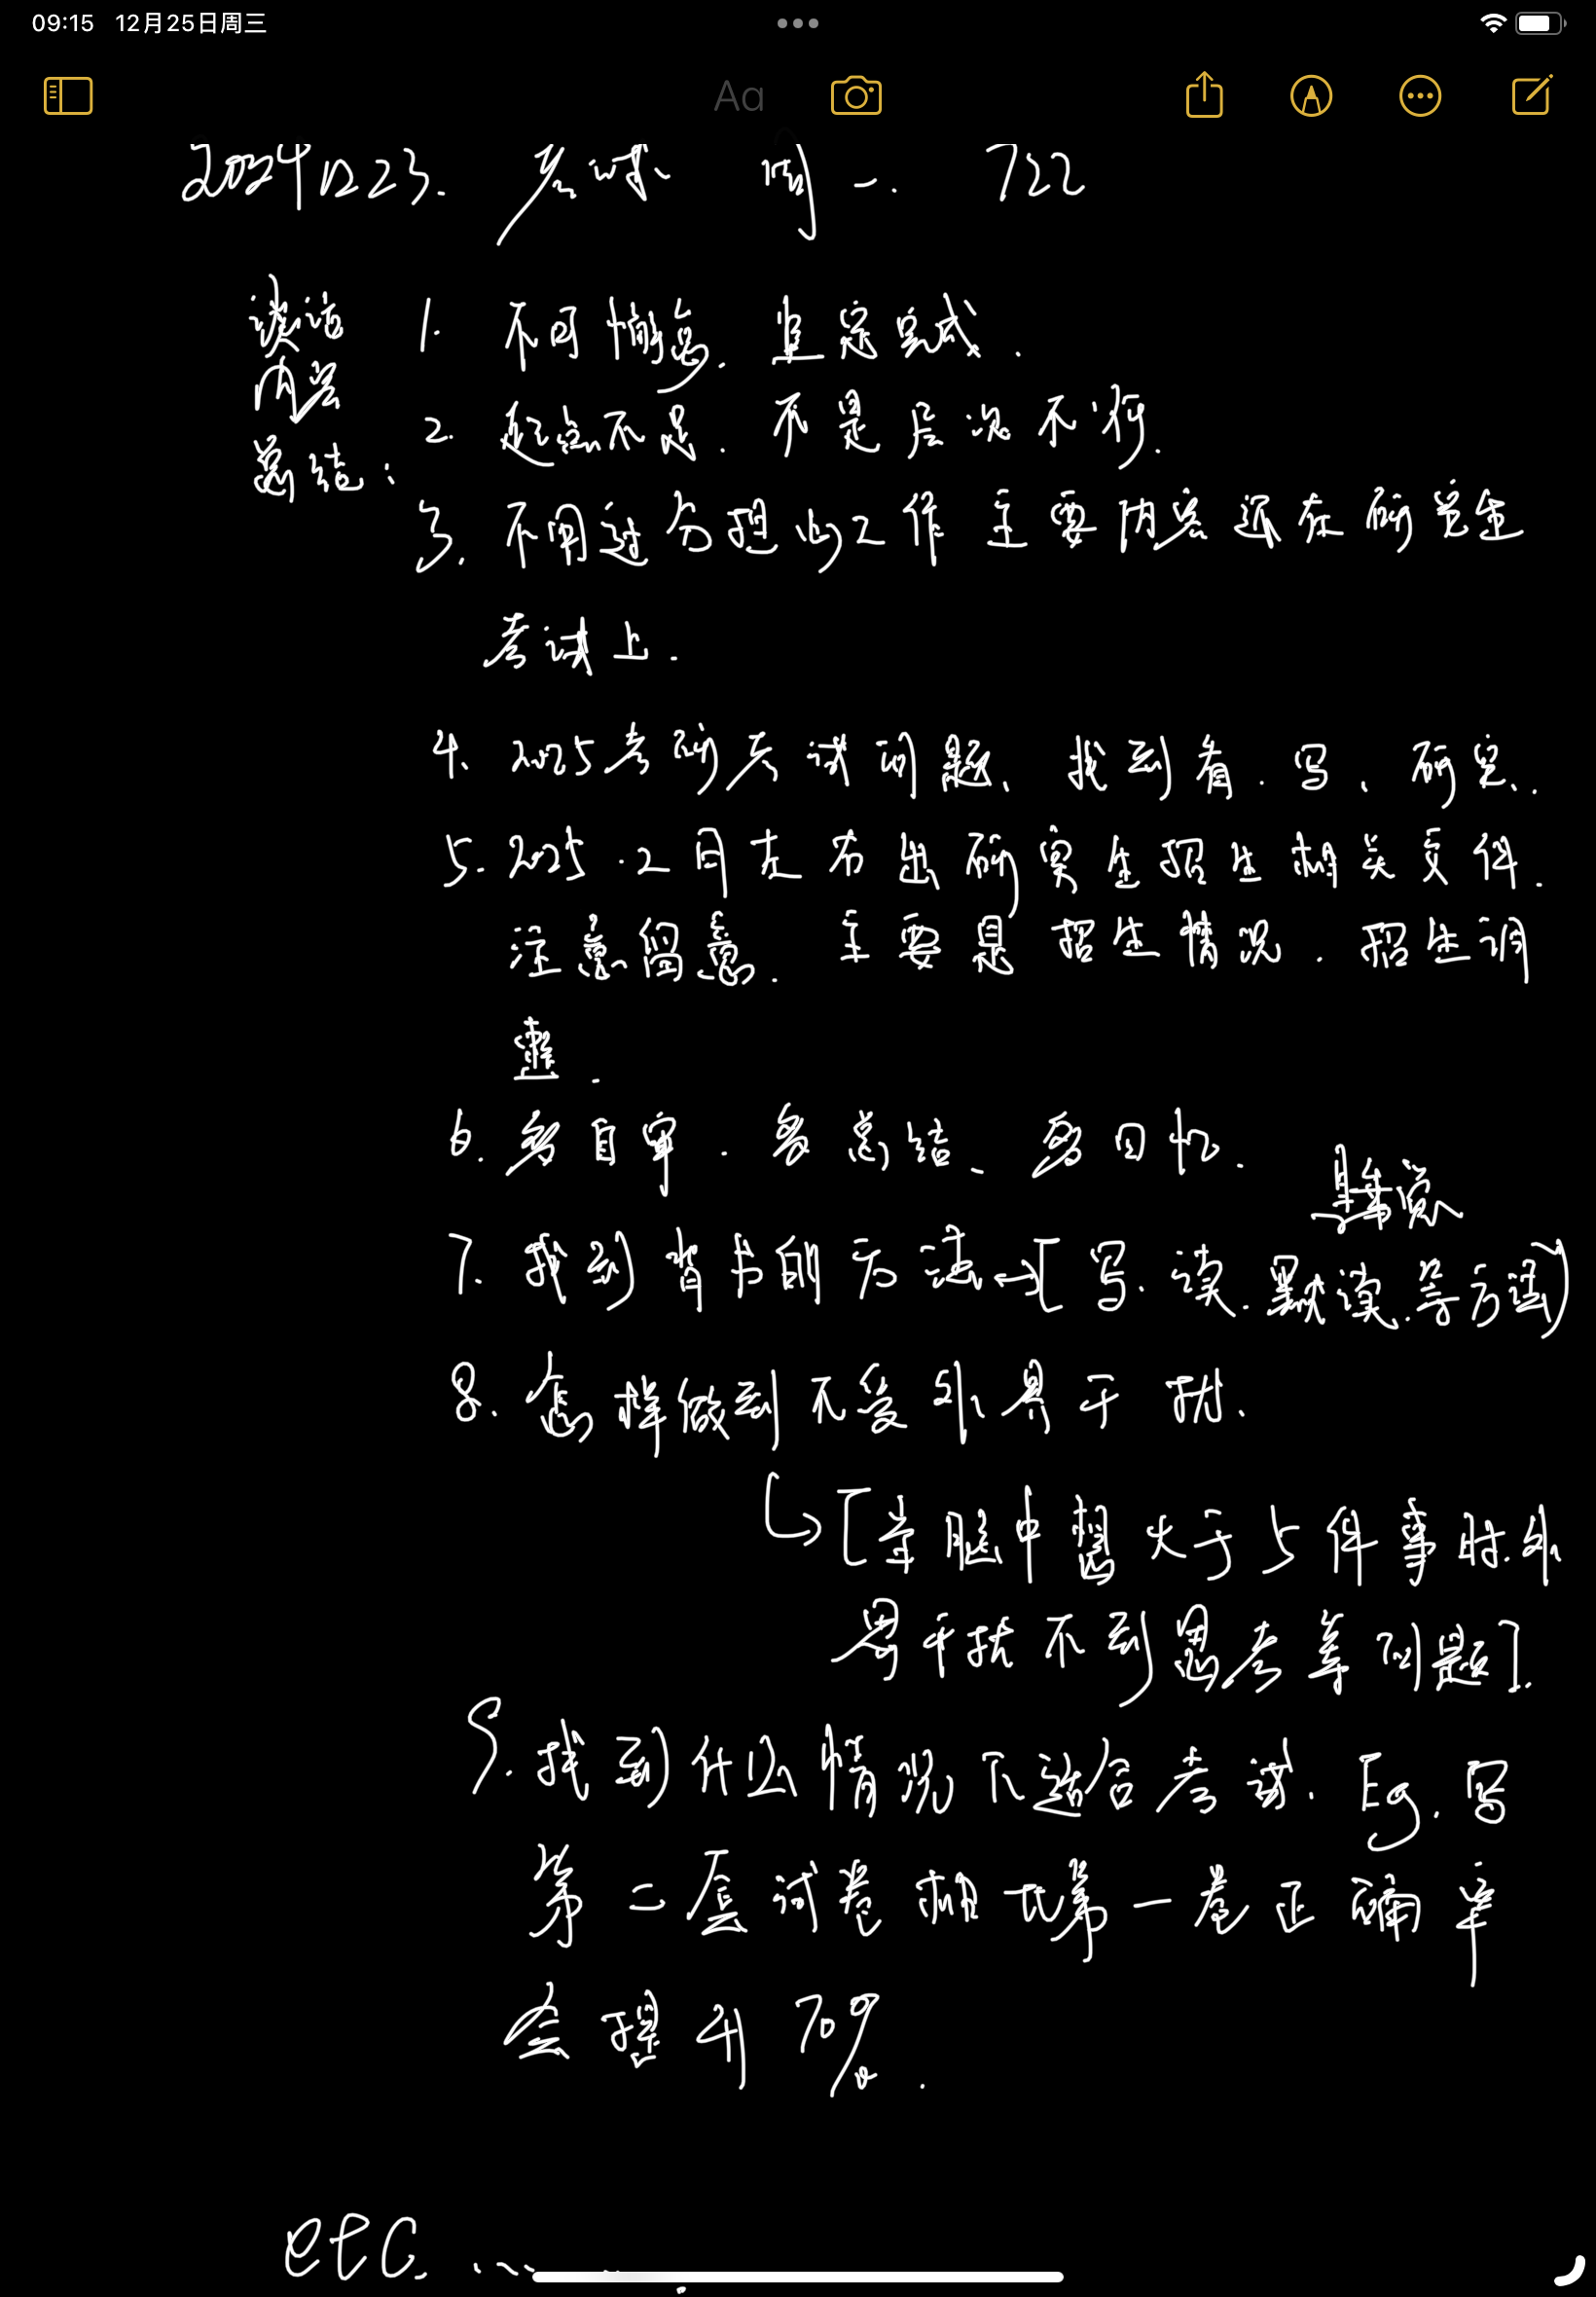 09:15 12月25日周三
Aa
20241223. 考试 周一. 722
谈话 1. 不可懈怠. 坚定完成.
内容
总结: 2. 起点不足. 不是层次不行.
3. 不用过分担心工作 主要内容还在研究生
考试上.
4、2025考研考试问题、找到看.写、研究..
5. 2025.2月左右出研究生招生相关文件.
注意留意. 主要是招生情况. 招生调
整.
6. 多自审. 多总结、多回忆.
7. 找到背书的方法↔[写.读.默读.等方法)
8. 怎样做到不受外界干扰.
↳[当脑中想大于5件事时.外
界干扰不到思考等问题].
9. 找到什么情况下适合考试. Eg. 写
第二套试卷相比第一卷正确率
会提升70%.
etc. ...